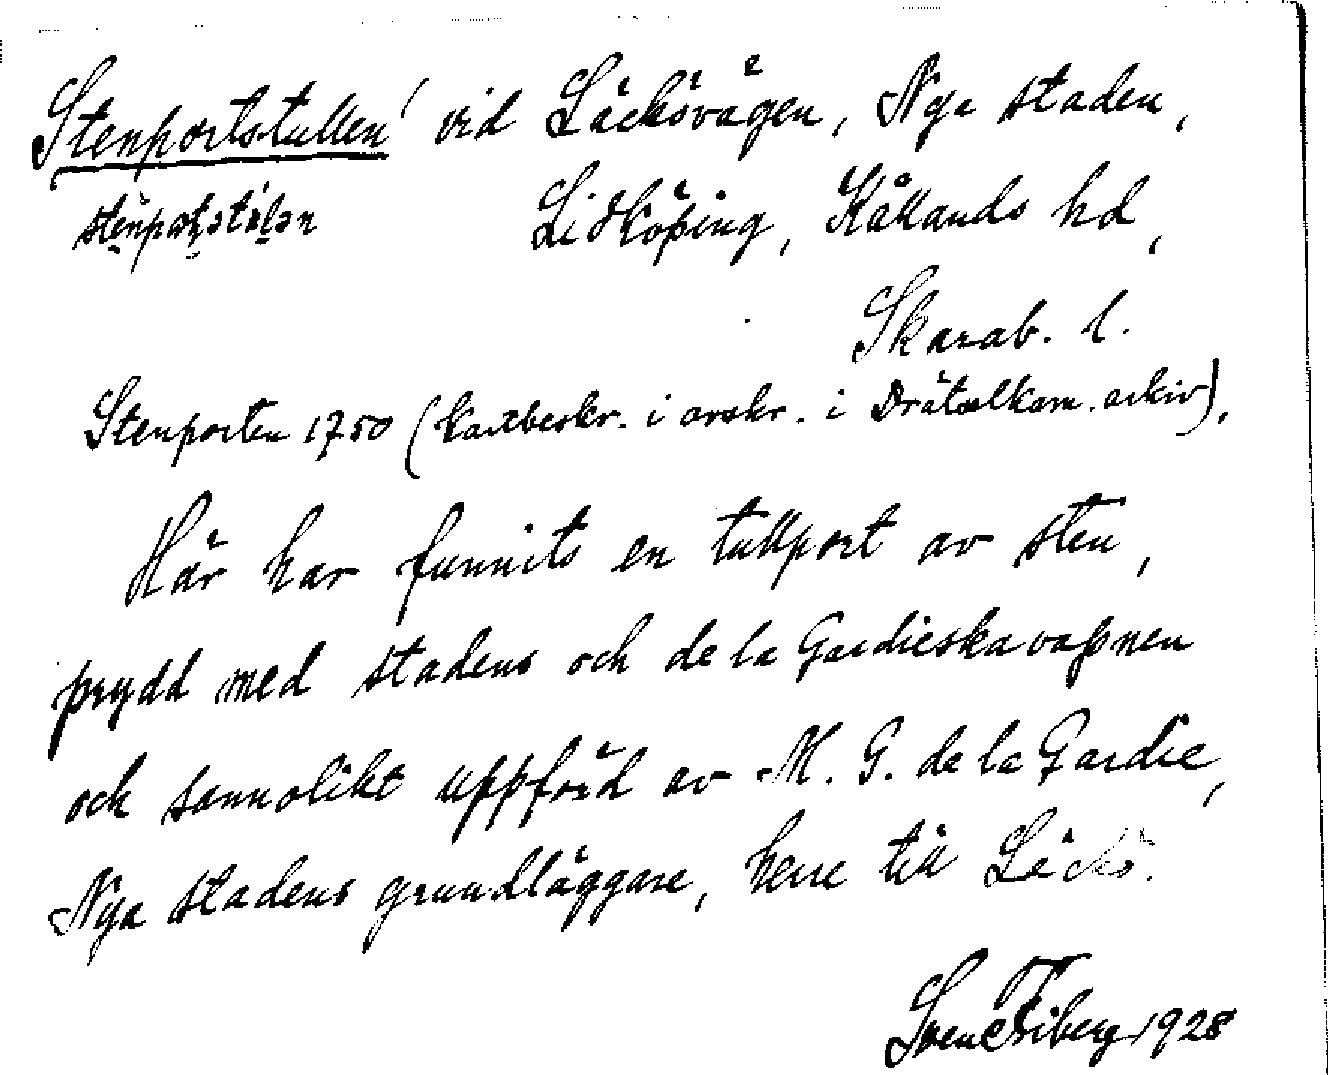 Stenportstullen vid Läckövägen, Nya staden,
Lidköping, Kållands hd,
Skarab. l.
Stenporten 1750 (kartbeskr. i avskr. i Drätselkam. arkiv).
Här har funnits en tullport av sten,
prydd med stadens och de la Gardieska vapnen
och sannolikt uppförd av M. G. de la Gardie,
Nya stadens grundläggare, herre till Läckö.
Sven 1928